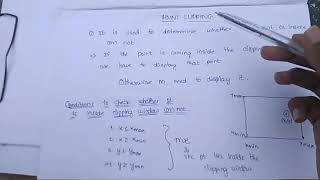 POINT CLIPPING
It is used to determine whether point is inside
or not
⇒ If the point is coming inside the clipping
we have to display that point
Otherwise no need to display it.
Conditions to check whether pt
is inside clipping window or not
1. x ≤ xmax
2. x ≥ xmin
3. y ≤ ymax
4. y ≥ ymin
true
The pt lies inside the
clipping window
ymax
ymin
xmin
xmax